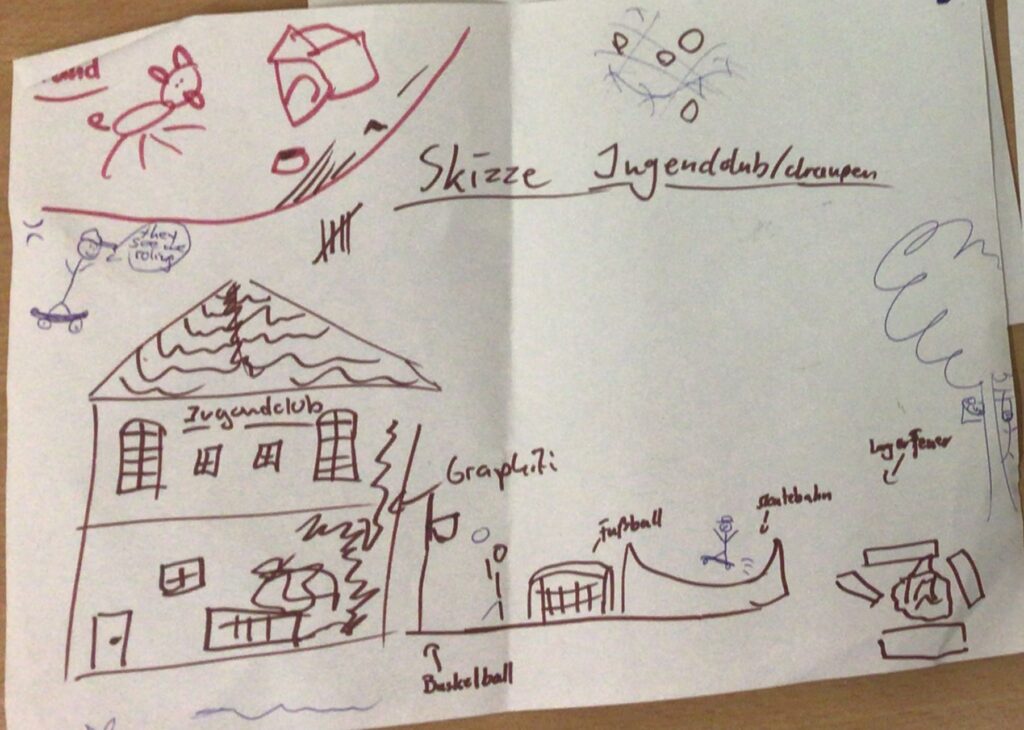 Skizze Jugendclub/draußen
they
see me
roling
Jugendclub
Graphiti
Lagerfeuer
skatebahn
Fußball
Basketball